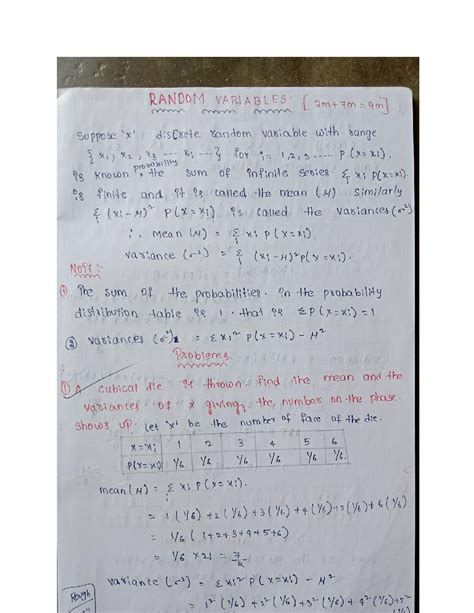 RANDOM VARIABLES. [2m+7m=9m]
Suppose 'x' discrete random variable with range
{x₁, x₂, x₃ --- xᵢ ---} for i = 1,2,3 ----- P(x=xᵢ).
is known probability, the sum of infinite series. Σ xᵢ P(x=xᵢ)
is finite and it is called the mean (μ) Similarly
Σ (xᵢ-μ)² P(x=xᵢ) is called the variances (σ²)
∴ Mean (μ) = Σ xᵢ P(x=xᵢ)
variance (σ²) = Σ (xᵢ-μ)² P(x=xᵢ).
NOTE:-
① The sum of the probabilities. in the probability
distribution table is 1. that is ΣP(x=xᵢ)=1
② variances (σ²) = Σxᵢ² P(x=xᵢ) - μ²
Problems
① A cubical die is thrown find the mean and the
variantes of x giving the number on the phase
shows up. let 'x' be the number of face of the die.
x=xᵢ 1 2 3 4 5 6
P(x=xᵢ) 1/6 1/6 1/6 1/6 1/6 1/6
mean (μ) = Σ xᵢ P(x=xᵢ).
= 1(1/6)+2(1/6)+3(1/6)+4(1/6)+5(1/6)+6(1/6)
= 1/6 (1+2+3+4+5+6)
= 1/6 × 21 = 7/2
variance (σ²) = Σxᵢ² P(x=xᵢ) - μ²
Rough
= 1²(1/6)+2²(1/6)+3²(1/6)+4²(1/6)+5²